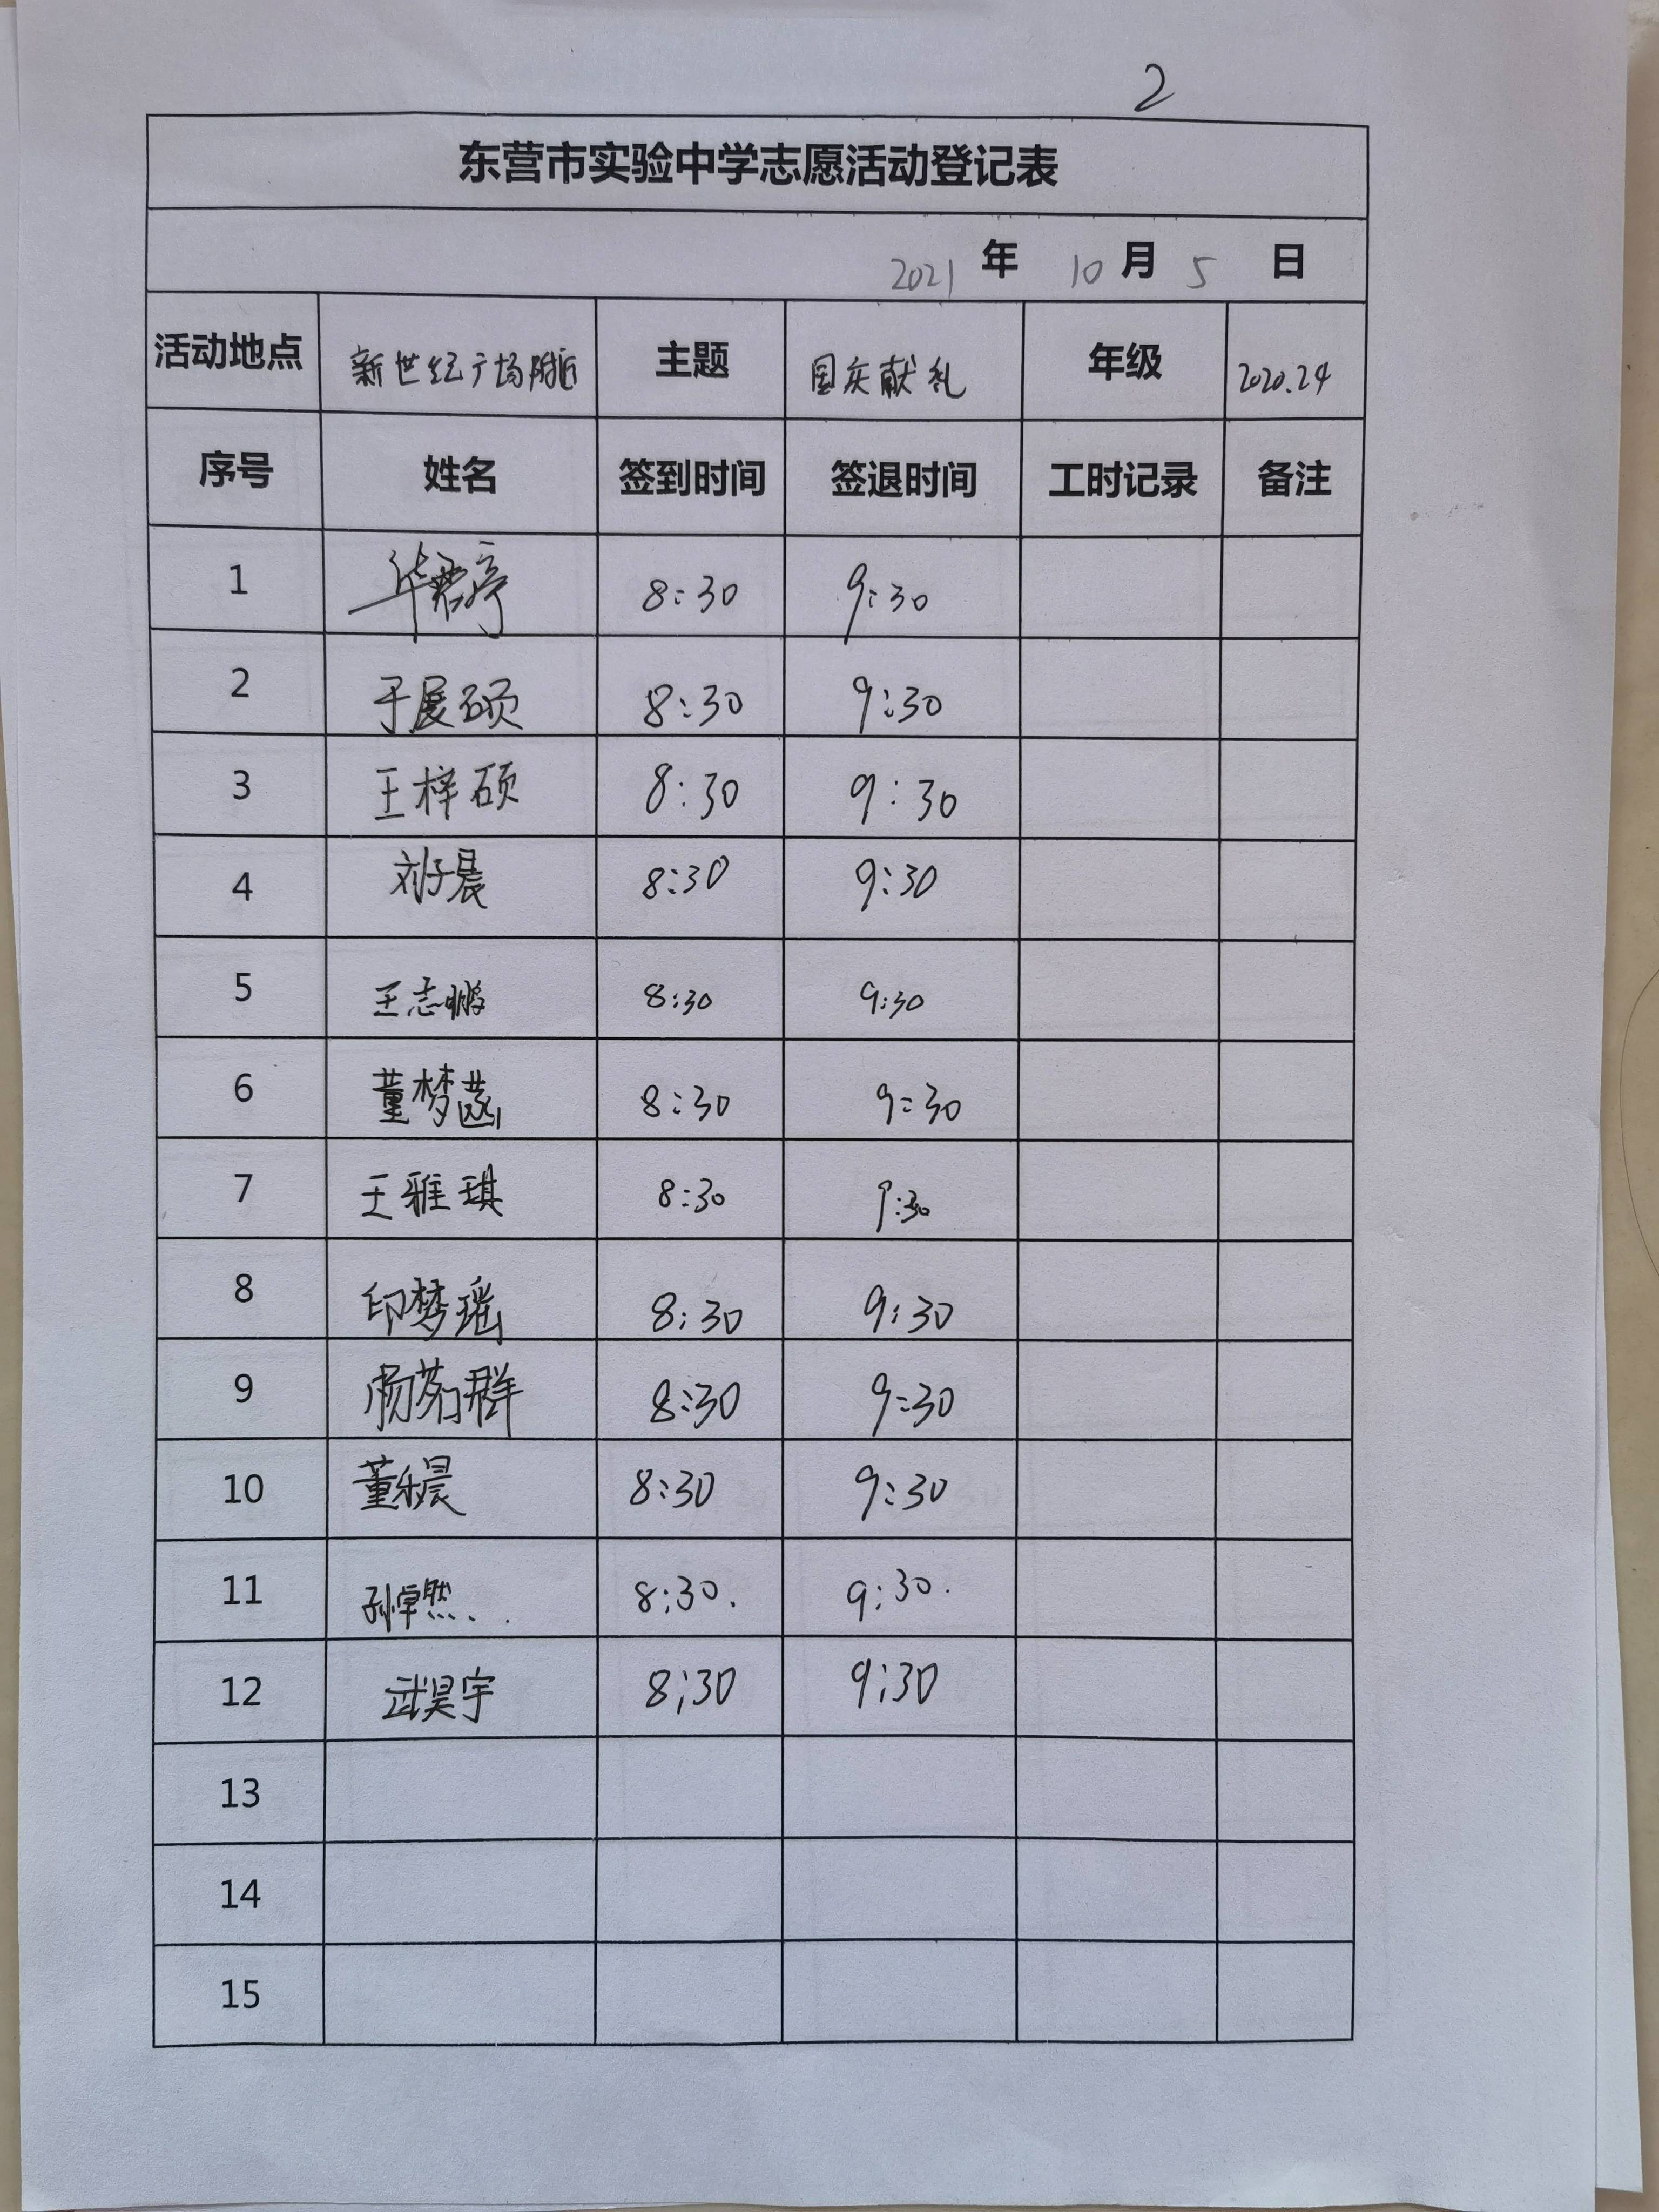 2
东营市实验中学志愿活动登记表
2021 年 10 月 5 日
活动地点 新世纪广场附近 主题 国庆献礼 年级 2020.24
序号 姓名 签到时间 签退时间 工时记录 备注
1 8:30 9:30
2 于展硕 8:30 9:30
3 王梓硕 8:30 9:30
4 刘子晨 8:30 9:30
5 王志鹏 8:30 9:30
6 董梦菡 8:30 9:30
7 王雅琪 8:30 9:30
8 印梦瑶 8:30 9:30
9 杨茗群 8:30 9:30
10 董乐晨 8:30 9:30
11 孙卓然 8:30. 9:30.
12 武昊宇 8:30 9:30
13
14
15